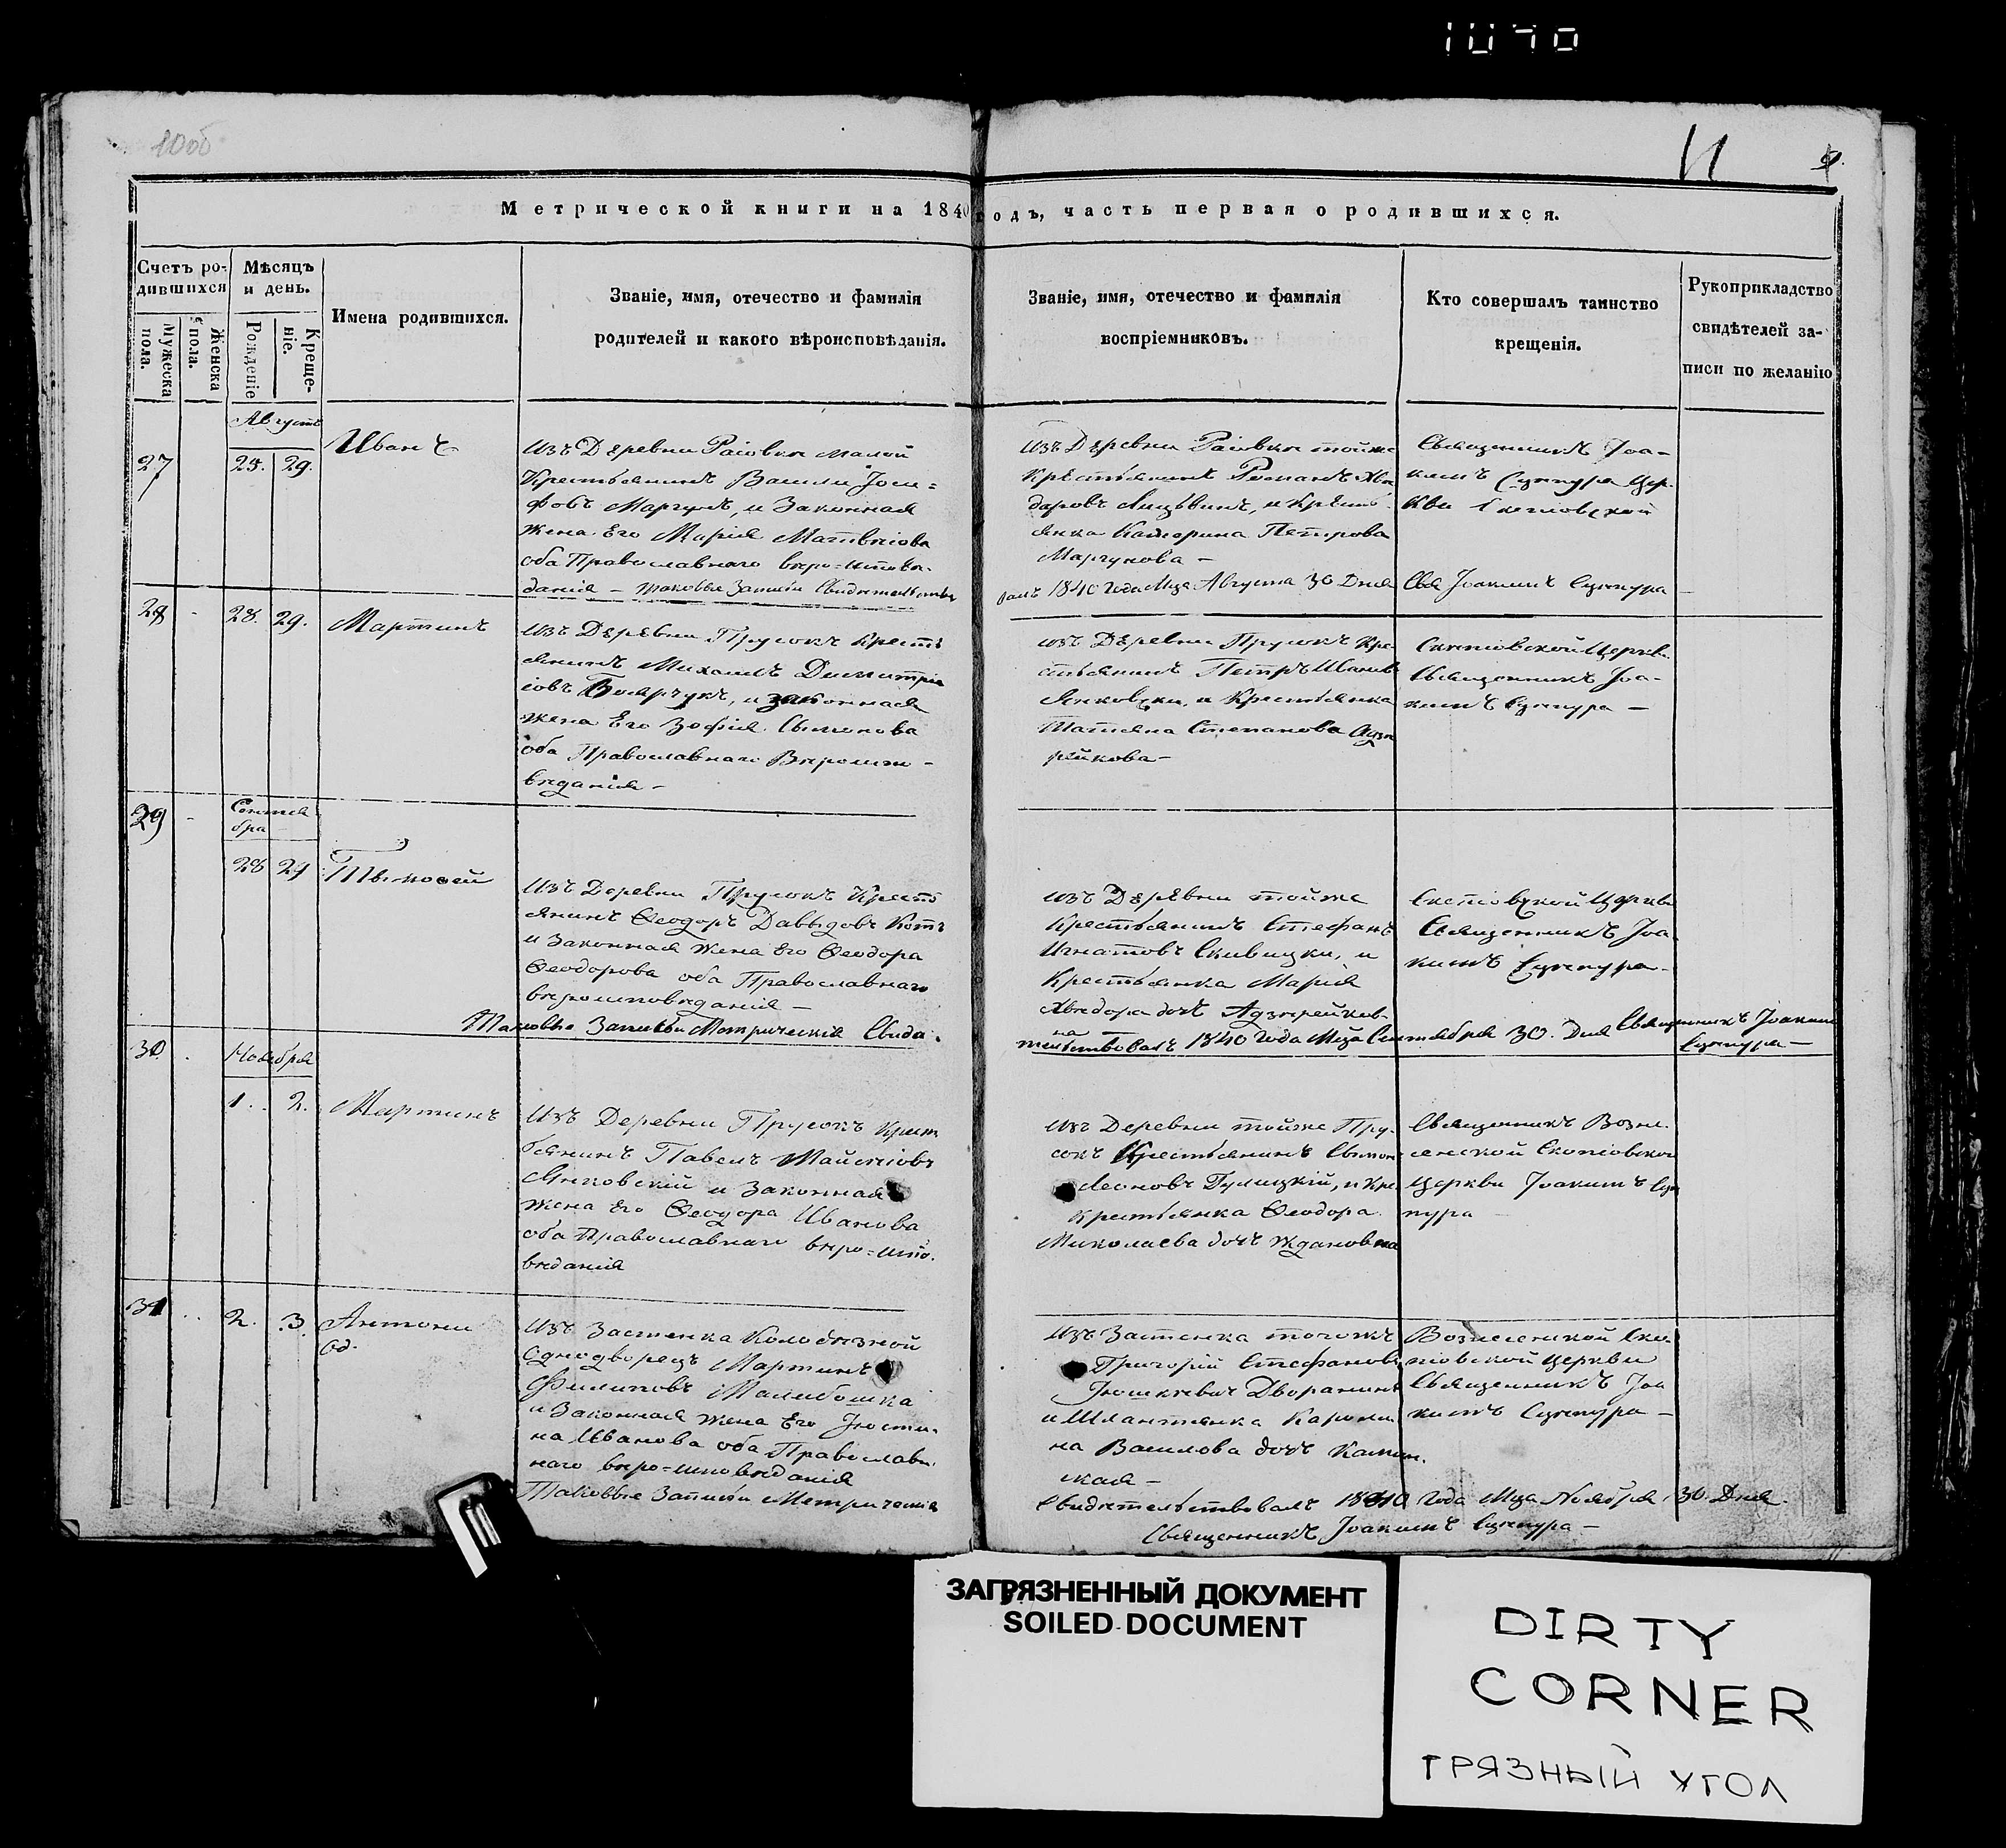 10об
11
Метрической книги на 1840 годъ, часть первая о родившихся.
Счетъ ро-
дившихся
Мужеска пола.
Женска пола.
Мѣсяцъ
и день.
Рожденіе
Креще-
ніе.
Имена родившихся.
Званіе, имя, отечество и фамилія
родителей и какого вѣроисповѣданія.
Званіе, имя, отечество и фамилія
воспріемниковъ.
Кто совершалъ таинство
крещенія.
Рукоприкладство
свидѣтелей за-
писи по желанію
Августъ
27
25. 29.
Иванъ
Изъ Деревни Раіовки малой
Крестьянинъ Васили Іоси=
фовъ Маргунъ, и Законная
жена Его Марія Матвѣіова
оба Православнаго вѣро=исповѣ-
данія – таковые Записи Свидетельство
Изъ Деревни Раіовки тойже
Крестьянинъ Романъ
и Крестъ-
янка Катерина Петрова
Маргунова –
валъ 1840 года Мца Августа 30 Дня
Священникъ Іоа-
кимъ Сцепура Цер-
кви
Свя Іоакимъ Сцепура
28 - 28. 29.
Мартинъ
Изъ Деревни Прусокъ Кресть
янинъ Михаилъ Димитрі
іовъ Боярчукъ, и законная
жена Его Зофія Сымонова
оба Православнаго Вѣроиспо-
вѣданія –
изъ Деревни Прусокъ Кре-
стьянинъ Петръ Иванов
Янковски, и Крестьянка
Татіяна Степанова
рейкова –
Церкви
Священникъ Іоа-
кимъ Сцепура –
29 -
Сентя
бря
28 29
Тымофей
Изъ Деревни Прусокъ Кресть
янинъ Ѳеодоръ Давыдовъ Котъ
и Законная жена Его Ѳеодора
Ѳеодорова оба Православнаго
вѣроисповѣданія –
Таковые Записы Метрическія Свиде-
изъ Деревни тойже
Крестьянинъ Стефанъ
Игнатовъ Скивицки, и
Крестьянка Марія
Хведора дочъ Адзерейков-
на
тельствовалъ 1840 Года Мца Сентября 30. Дня Священникъ Іоаким
Сцепура –
Церкви
Священникъ Іоа-
кимъ Сцепура –
30 .
Ноября
1. . 2.
Мартинъ
Изъ Деревни Прусокъ Крест
ьянинъ Павелъ Майсеіовъ
Янковскій и Законная
жена Его Ѳеодора Иванова
оба Православнаго вѣро=испо-
вѣданія
Изъ Деревни тойже Пру-
сокъ Крестьянинъ Сымон
Леоновъ Гулицкій, и Кре
Крестьянка Ѳеодора
Миколаева дочъ Ждановна
Священникъ Возне-
сенской Скепіовской
Церкви Іоакимъ Сце
пура
31 . . 2. 3.
Антони
Од.
Изъ Застенка Колодязной
Однодворецъ Мартинъ
Филиповъ
и Законная жена Его Іюсти-
на Иванова оба Православ-
наго вѣро=исповѣданія
Таковые Записи Метрическія
Изъ Застенка тогожъ
Григорій Стефановъ
Дворанинъ
и Шляхтянка Кароли
на Василова дочъ Камин-
ская –
Свидетельствовалъ 1840 Года Мца Ноября 30. Дня.
Священникъ Іоакимъ Сцепура –
Вознесенской Ске
піовской Церкви
Священникъ Іоа
кимъ Сцепура –
ЗАГРЯЗНЕННЫЙ ДОКУМЕНТ
SOILED DOCUMENT
DIRTY
CORNER
ГРЯЗНЫЙ УГОЛ